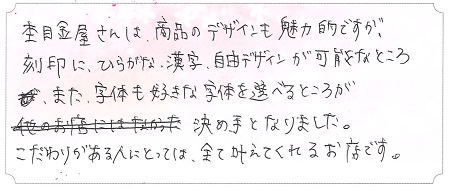 杢目金屋さんは、商品のデザインも魅力的ですが、
刻印に、ひらがな、漢字、自由デザインが可能なところ
、また、字体も好きな字体を選べるところが
決め手となりました。
こだわりがある人にとっては、全て叶えてくれるお店です。